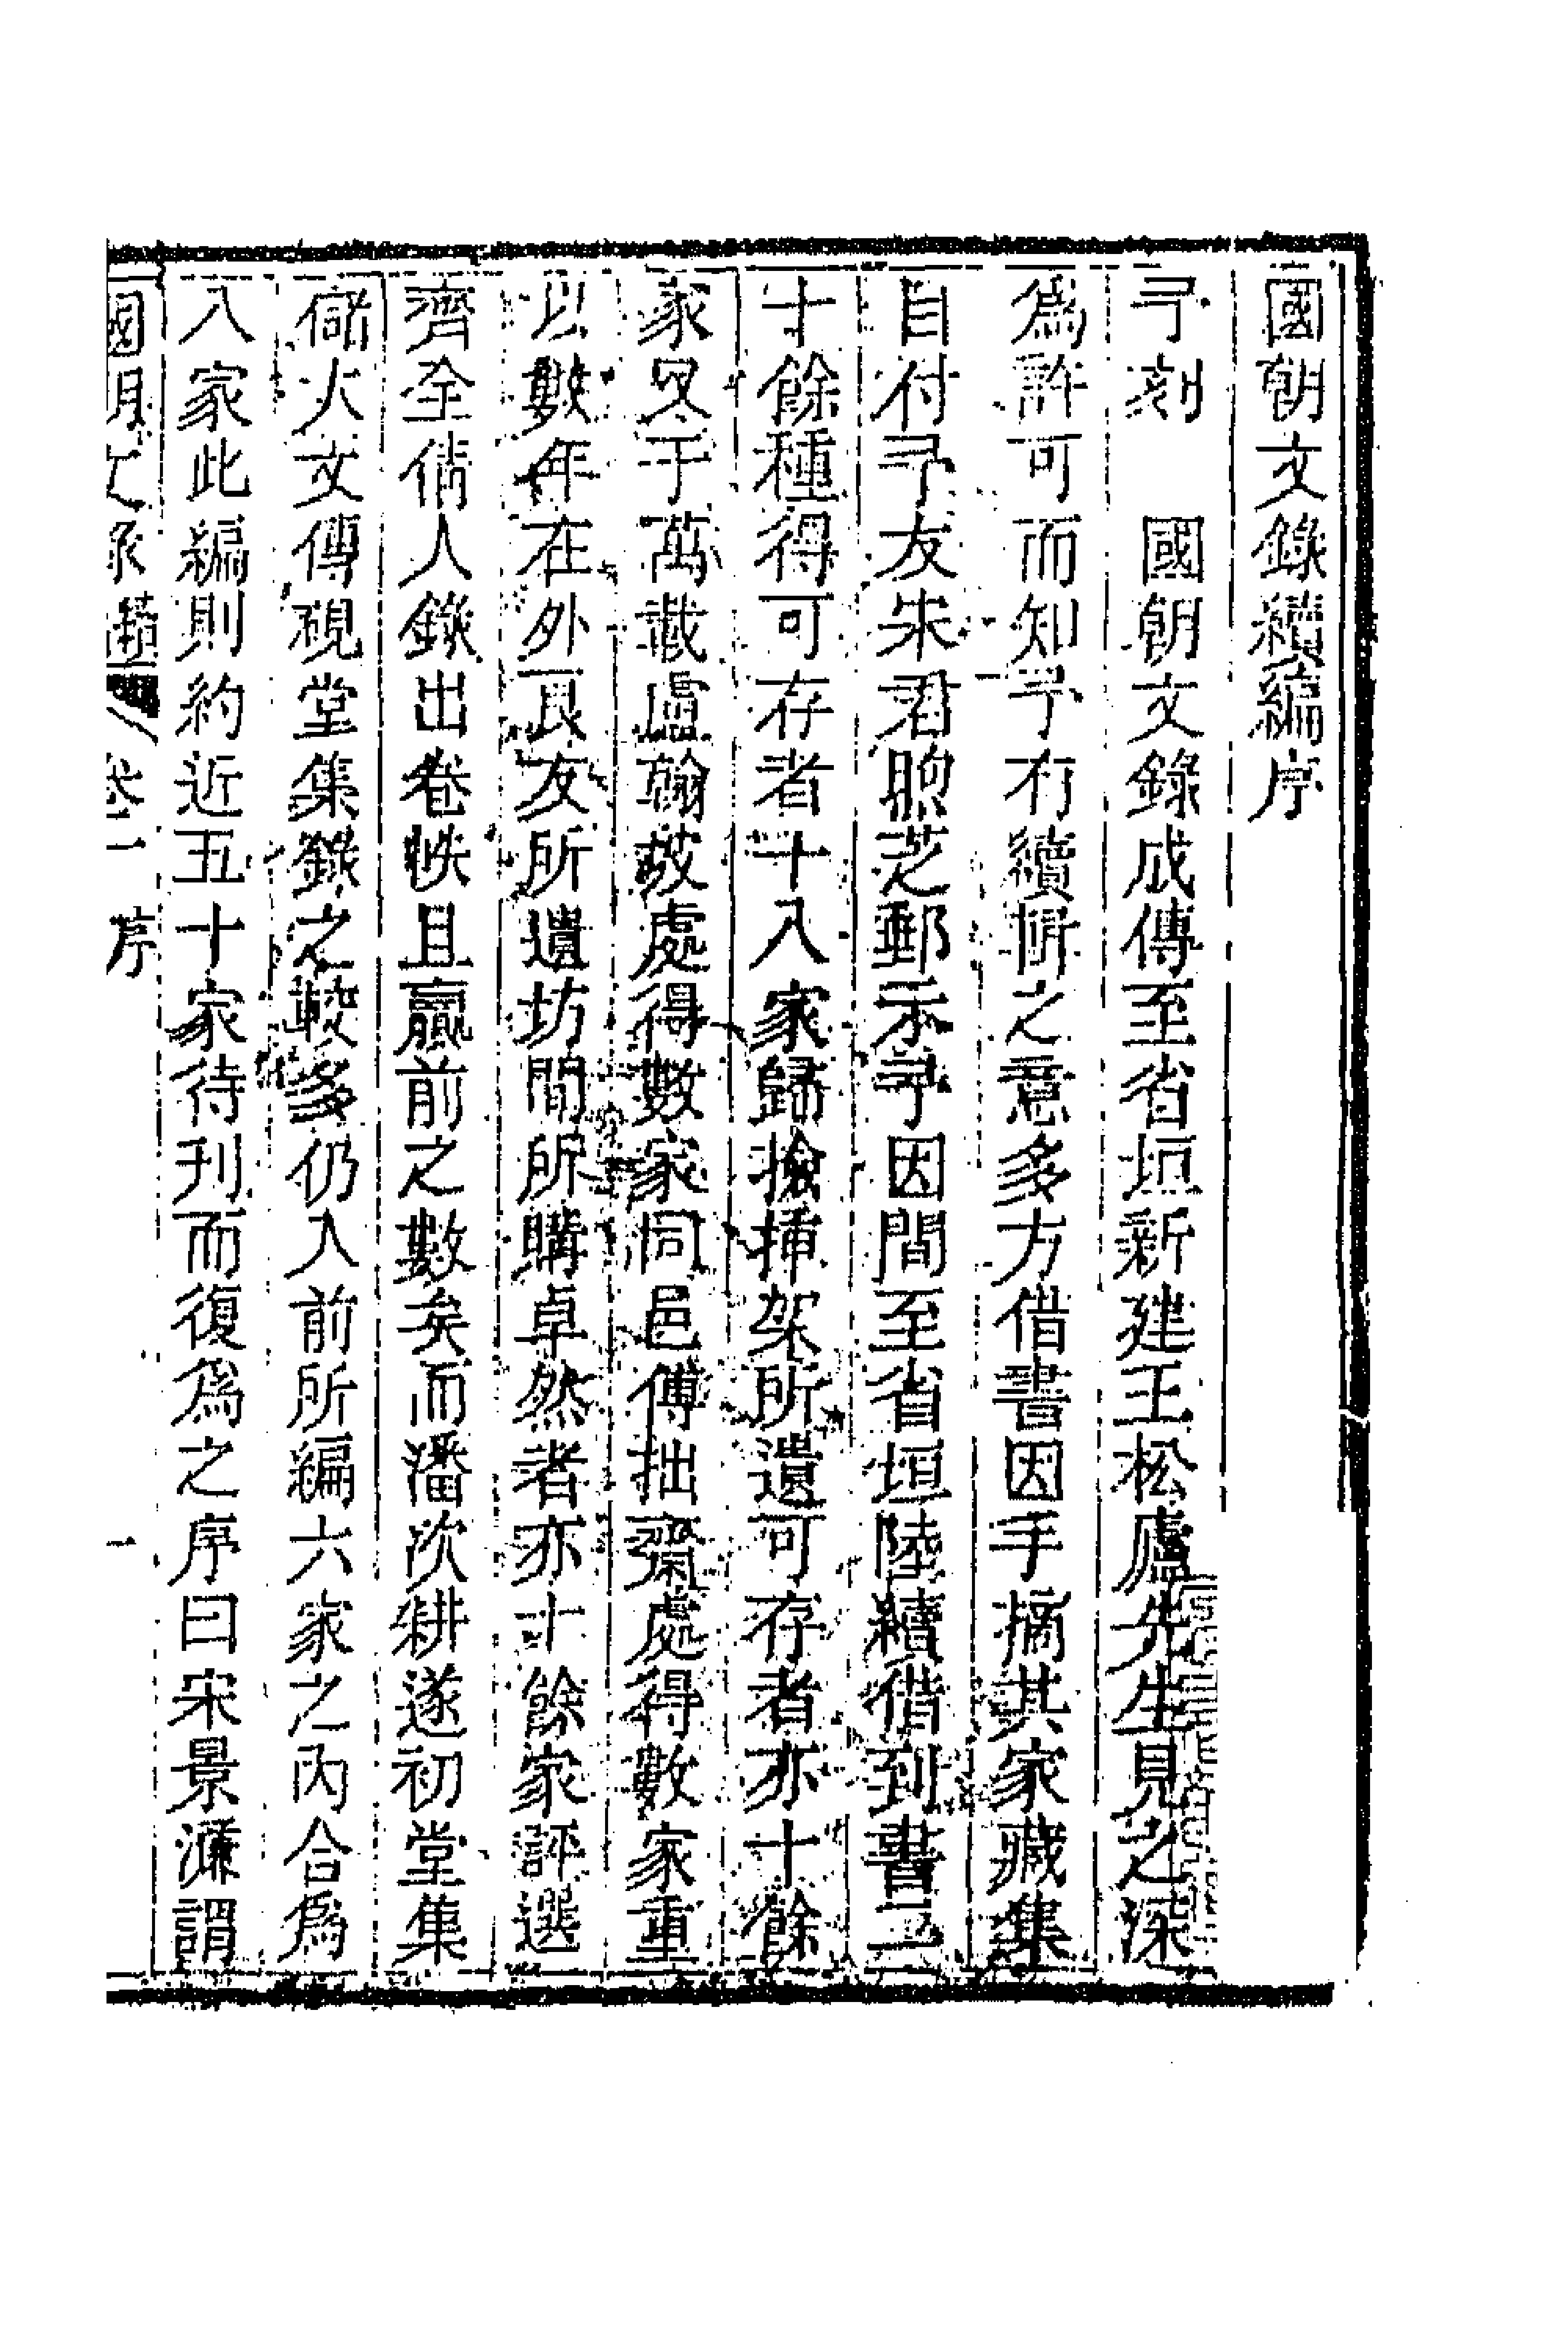 國朝文錄續編序
予刻　國朝文錄成傳至省垣新建王松廬先生見之深
爲許可而知予有續編之意多方借書因手摘其家藏集
目付予友朱君煦芝郵示予因間至省垣陸續借到書二
十餘種得可存者十八家歸撿揷架所遺可存者亦十餘
家又于萬載盧翰坡處得數家同邑傅拙齋處得數家重
以數年在外良友所遺坊間所購卓然者亦十餘家評選
濟全倩人錄出卷帙且贏前之數矣而潘次耕遂初堂集
儲大文傳硯堂集錄之較多仍入前所編六家之內合爲
八家此編則約近五十家待刊而復爲之序曰宋景濂謂
國朝文錄續編　卷一　序　一